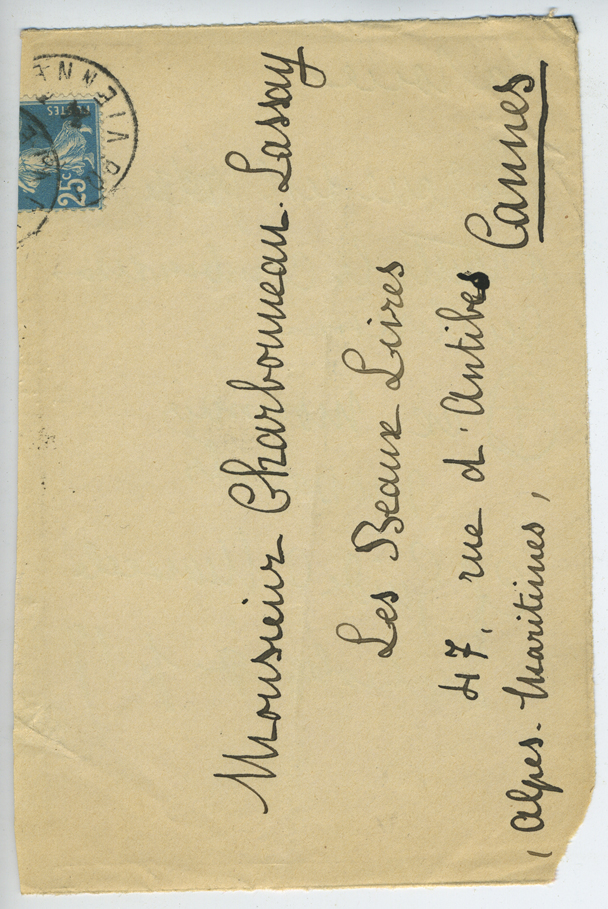 Monsieur Charbonneau-Lassay
Les Beaux Livres
47, rue d'Antibes
Cannes
(Alpes-Maritimes)
25c
POSTES
VIENNE